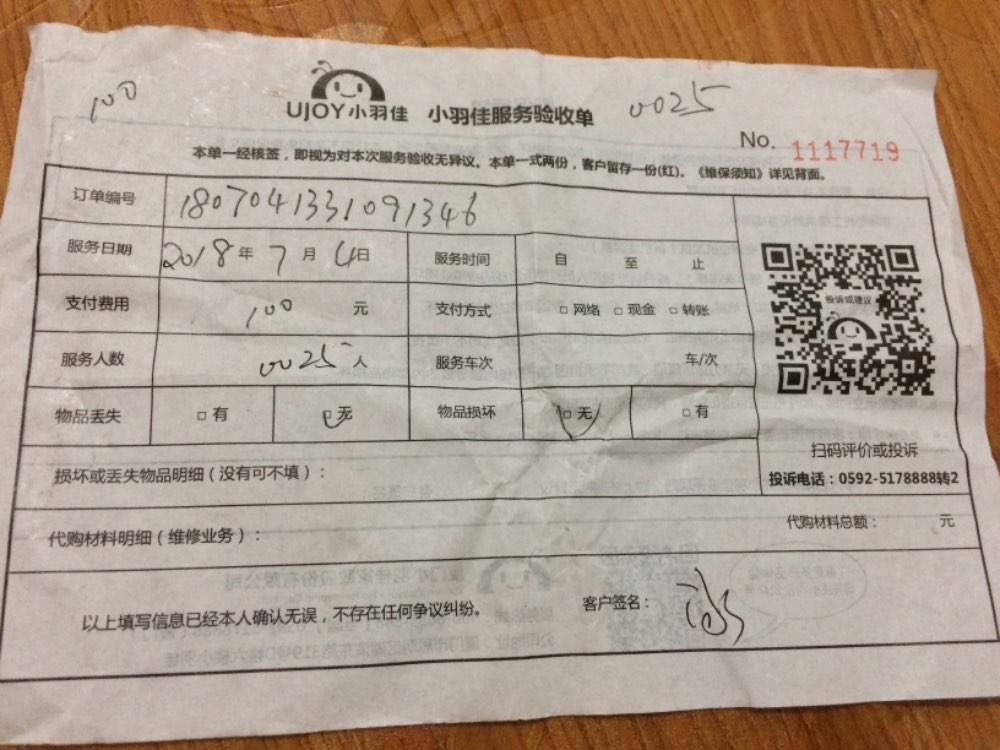 100
UJOY小羽佳 小羽佳服务验收单
0025
No. 1117719
本单一经核签,即视为对本次服务验收无异议。本单一式两份,客户留存一份(红)。《维保须知》详见背面。
订单编号 1807041331091346
服务日期 2018年7月4日 服务时间 自 至 止
支付费用 100 元 支付方式 □网络 □现金 □转账
服务人数 0025人 服务车次 车/次
物品丢失 □有 □无 物品损坏 □无 □有
投诉或建议
扫码评价或投诉
投诉电话:0592-5178888转2
损坏或丢失物品明细(没有可不填):
代购材料明细(维修业务): 代购材料总额: 元
以上填写信息已经本人确认无误,不存在任何争议纠纷。 客户签名: